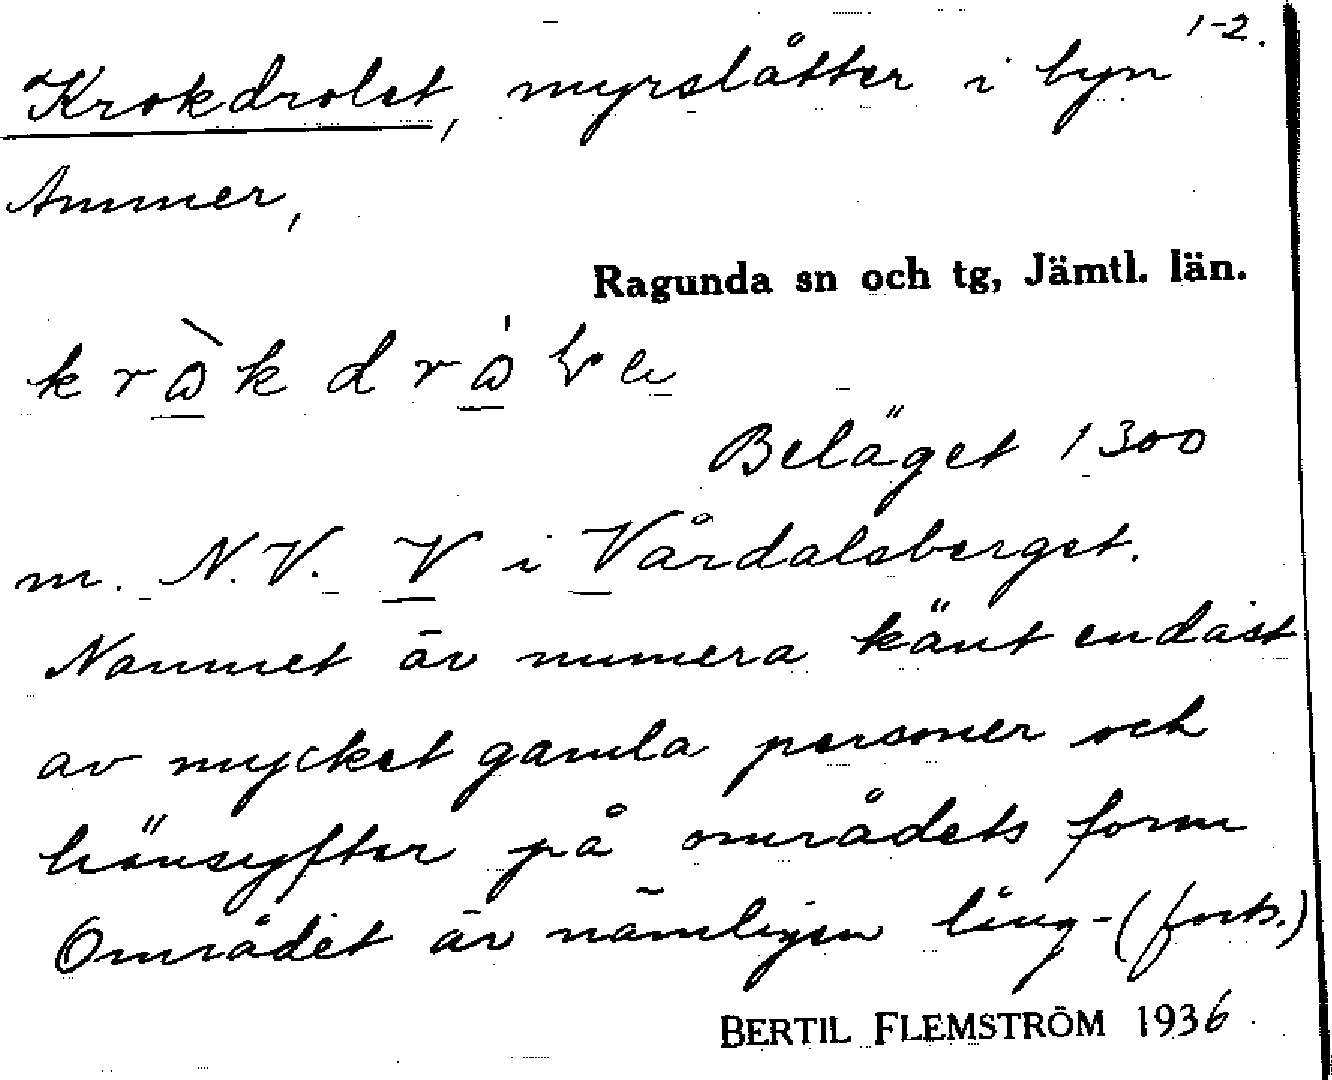 1-2.
Krokdrolet, myrslåtter i byn
Ammer,
Ragunda sn och tg, Jämtl. län.
Beläget 1300
m. N.V. V i Vårdalsberget.
Namnet är numera känt endast
av mycket gamla personer och
hänsyftar på områdets form
Området är nämligen ling-(forts.)
BERTIL FLEMSTRÖM 1936